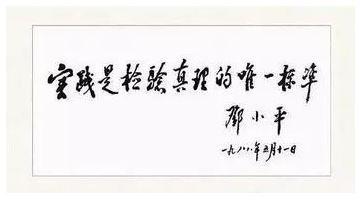 实践是检驗真理的唯一标準
鄧小平
一九八八年五月十一日